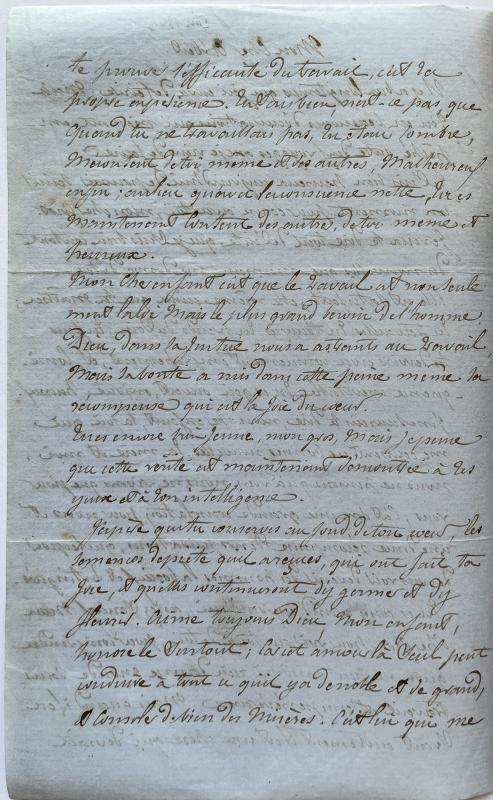 te prouve l'efficacité du travail, c'est ta
propre expérience. Tu sais bien, n'est-ce pas, que
quand tu ne travaillais pas, tu étais sombre,
Mécontent de toi même et des autres, Malheureux
enfin ; au lieu qu'avec la conscience nette, tu es
maintenant Content des autres, de toi même et
heureux.
Mon Cher enfant c'est que le travail est non seule
ment la loi Mais le plus grand besoin de l'homme
Dieu, dans sa Justice nous a astreints au travail,
Mais sa bonté a mis dans cette peine même sa
récompense qui est la Joie du cœur.
Tu es encore bien Jeune, mon gros, Mais je pense
que cette vérité est maintenant démontrée à tes
yeux et à ton intelligence.
J'espère que tu conserves au fond de ton cœur, les
semences de piété qu'il a reçues, qui ont fait ta
Joie, et qu'elles continueront d'y germer et d'y
fleurir. Aime toujours Dieu, Mon enfant,
honore le Surtout ; Car cet amour là Seul peut
conduire à tout ce qu'il y a de noble et de grand,
et console de bien des Misères. C'est lui qui me